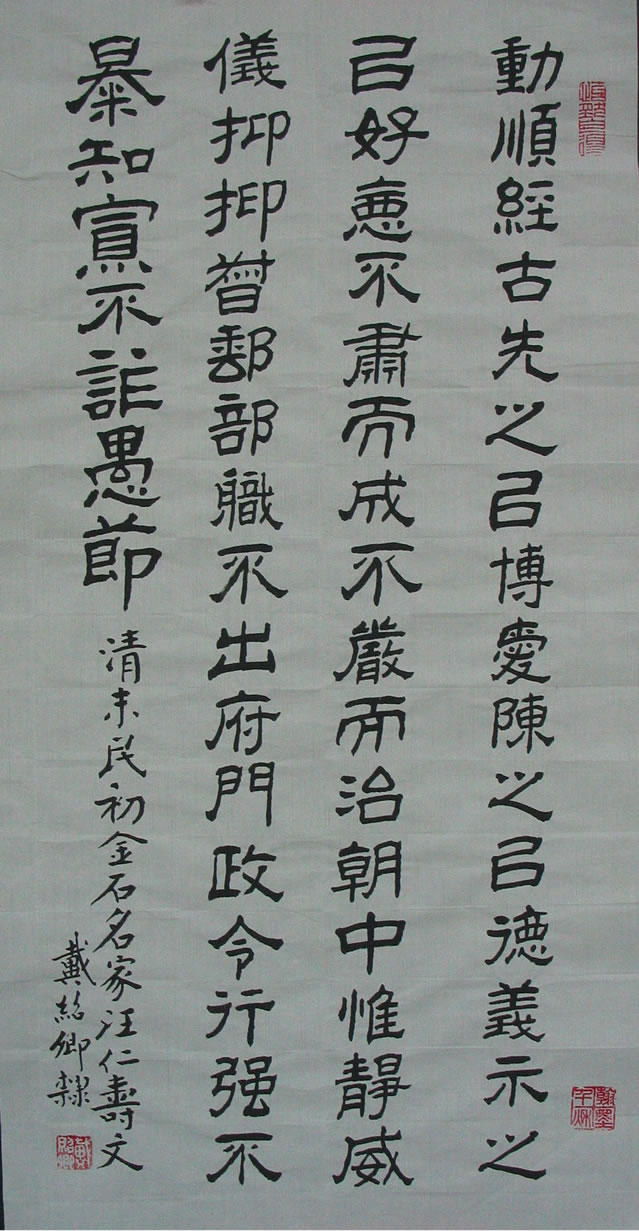 動順經古先之㠯博愛陳之㠯德義示之
㠯好惡不肅而成不嚴而治朝中惟靜威
儀抑抑督郵部職不出府門政令行强不
暴知寡不詐愚節
清末民初金石名家汪仁壽文
戴紹卿隸
翰墨千秋
戴紹卿